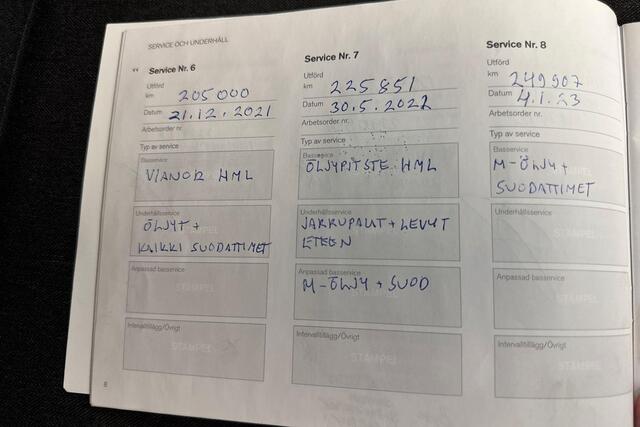 SERVICE OCH UNDERHÅLL
Service Nr. 6
Utförd
km 205000
Datum 21.12.2021
Arbetsorder nr.
Typ av service
Basservice
VIANOR HML
Underhållsservice
ÖLJYT +
KAIKKI SUODATTIMET
Anpassad basservice
STAMPEL
Intervalltillägg/Övrigt
STAMPEL
6
Service Nr. 7
Utförd
km 225851
Datum 30.5.2022
Arbetsorder nr.
Typ av service
Basservice
ÖLJYPISTE HML
Underhållsservice
JARRUPALAT + LEVYT
ETEEN
Anpassad basservice
M-ÖLJY + SUOD
Intervalltillägg/Övrigt
STAMPEL
Service Nr. 8
Utförd
km 249907
Datum 4.1.23
Arbetsorder nr.
Typ av service
Basservice
M-ÖLJY +
SUODATTIMET
Underhållsservice
STAMPEL
Anpassad basservice
STAMPEL
Intervalltillägg/Övrigt
STAMPEL